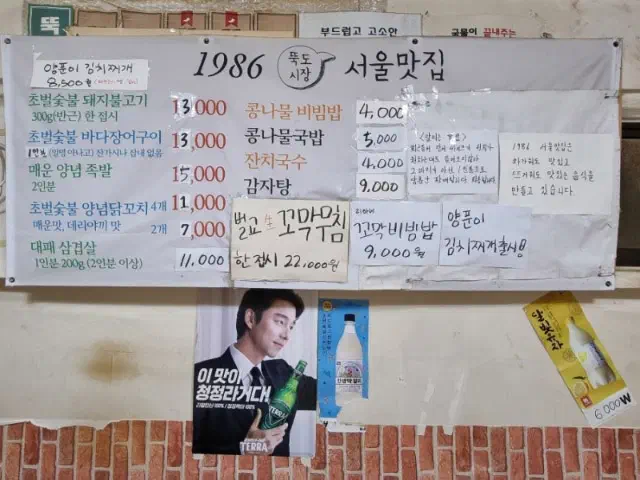 부드럽고 고소한
국물이 끝내주는
뚝
1986 뚝도시장 서울맛집
양푼이 김치찌개
8,500원
초벌숯불 돼지불고기 13,000
300g(반근) 한 접시
초벌숯불 바다장어구이 13,000
매운 양념 족발 15,000
2인분
초벌숯불 양념닭꼬치 4개 11,000
매운맛, 데리야끼 맛 2개 7,000
대패 삼겹살
1인분 200g (2인분 이상) 11,000
콩나물 비빔밥 4,000
콩나물국밥 5,000
잔치국수 4,000
감자탕 9,000
벌교 生 꼬막무침
한접시 22,000원
꼬막비빔밥
9,000원
양푼이
김치찌개출시!
1986 서울맛집은
차가워도 맛있고
뜨거워도 맛있는 음식을
만들고 있습니다.
이 맛이
청정라거다!
TERRA
TERRA
6,000₩